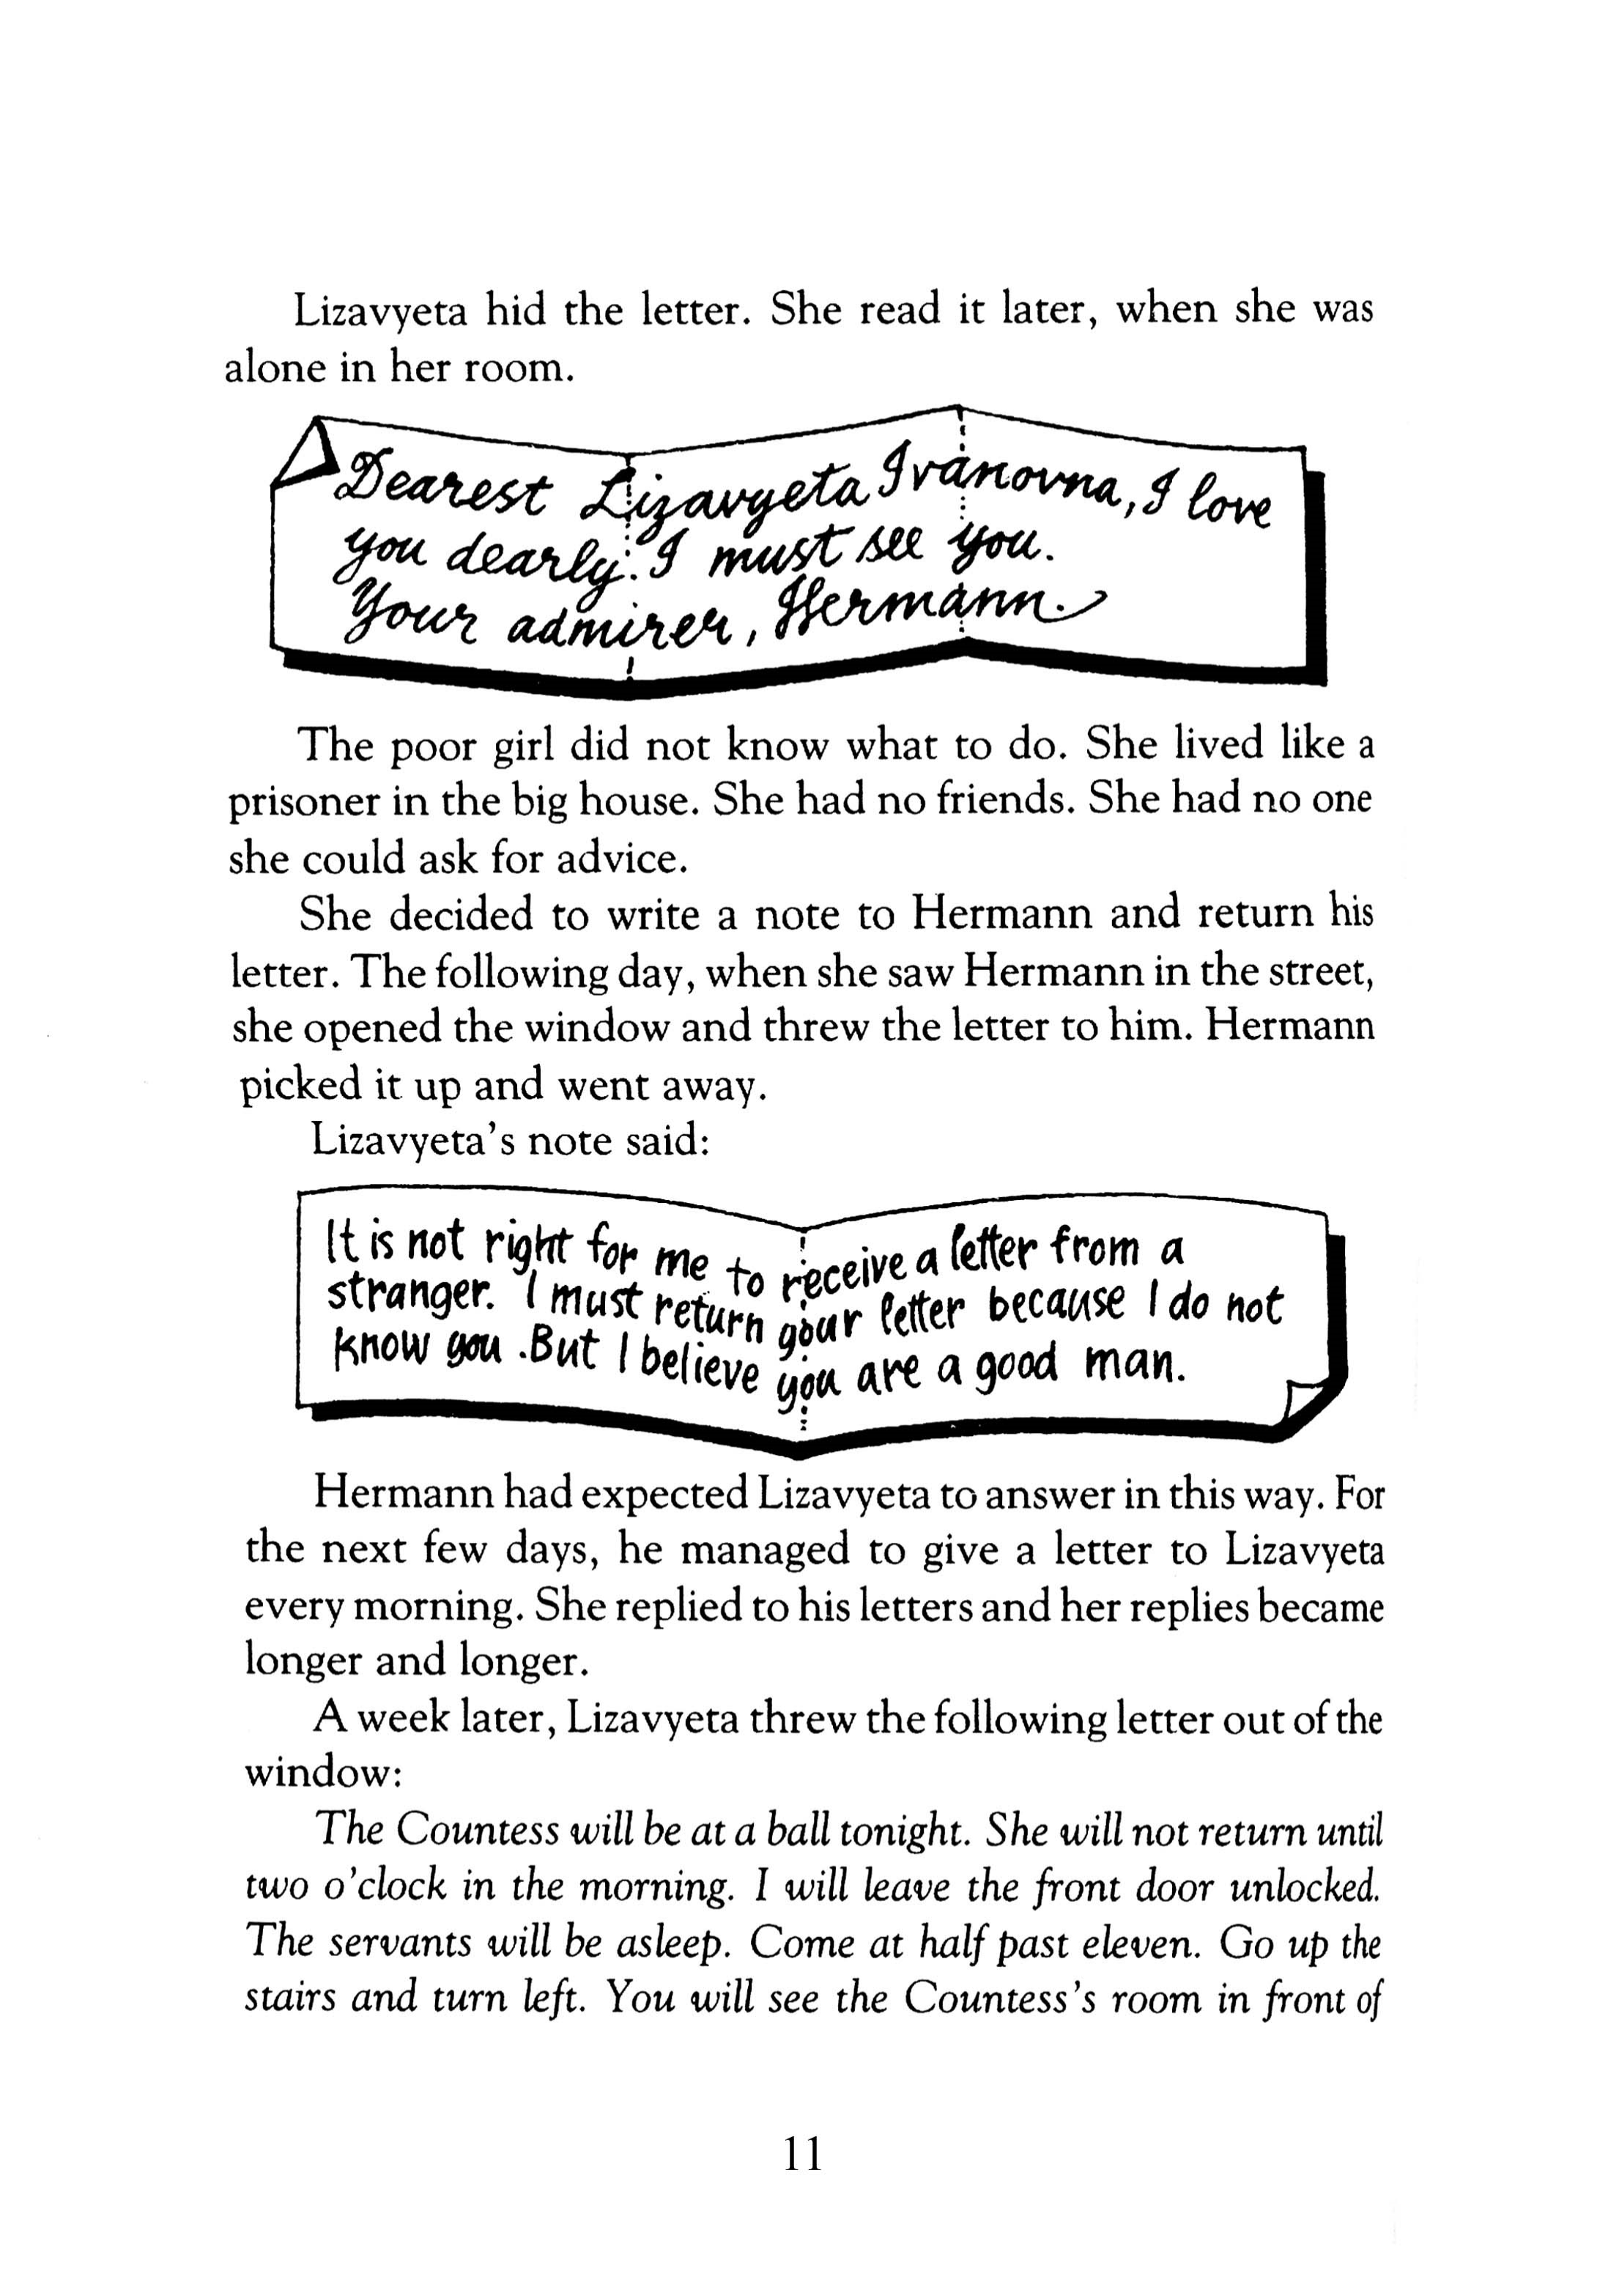 Lizavyeta hid the letter. She read it later, when she was
alone in her room.
Dearest Lizavyeta Ivanovna, I love
you dearly. I must see you.
Your admirer, Hermann.
The poor girl did not know what to do. She lived like a
prisoner in the big house. She had no friends. She had no one
she could ask for advice.
She decided to write a note to Hermann and return his
letter. The following day, when she saw Hermann in the street,
she opened the window and threw the letter to him. Hermann
picked it up and went away.
Lizavyeta's note said:
It is not right for me to receive a letter from a
stranger. I must return your letter because I do not
know you. But I believe you are a good man.
Hermann had expected Lizavyeta to answer in this way. For
the next few days, he managed to give a letter to Lizavyeta
every morning. She replied to his letters and her replies became
longer and longer.
A week later, Lizavyeta threw the following letter out of the
window:
The Countess will be at a ball tonight. She will not return until
two o'clock in the morning. I will leave the front door unlocked.
The servants will be asleep. Come at half past eleven. Go up the
stairs and turn left. You will see the Countess's room in front of
11